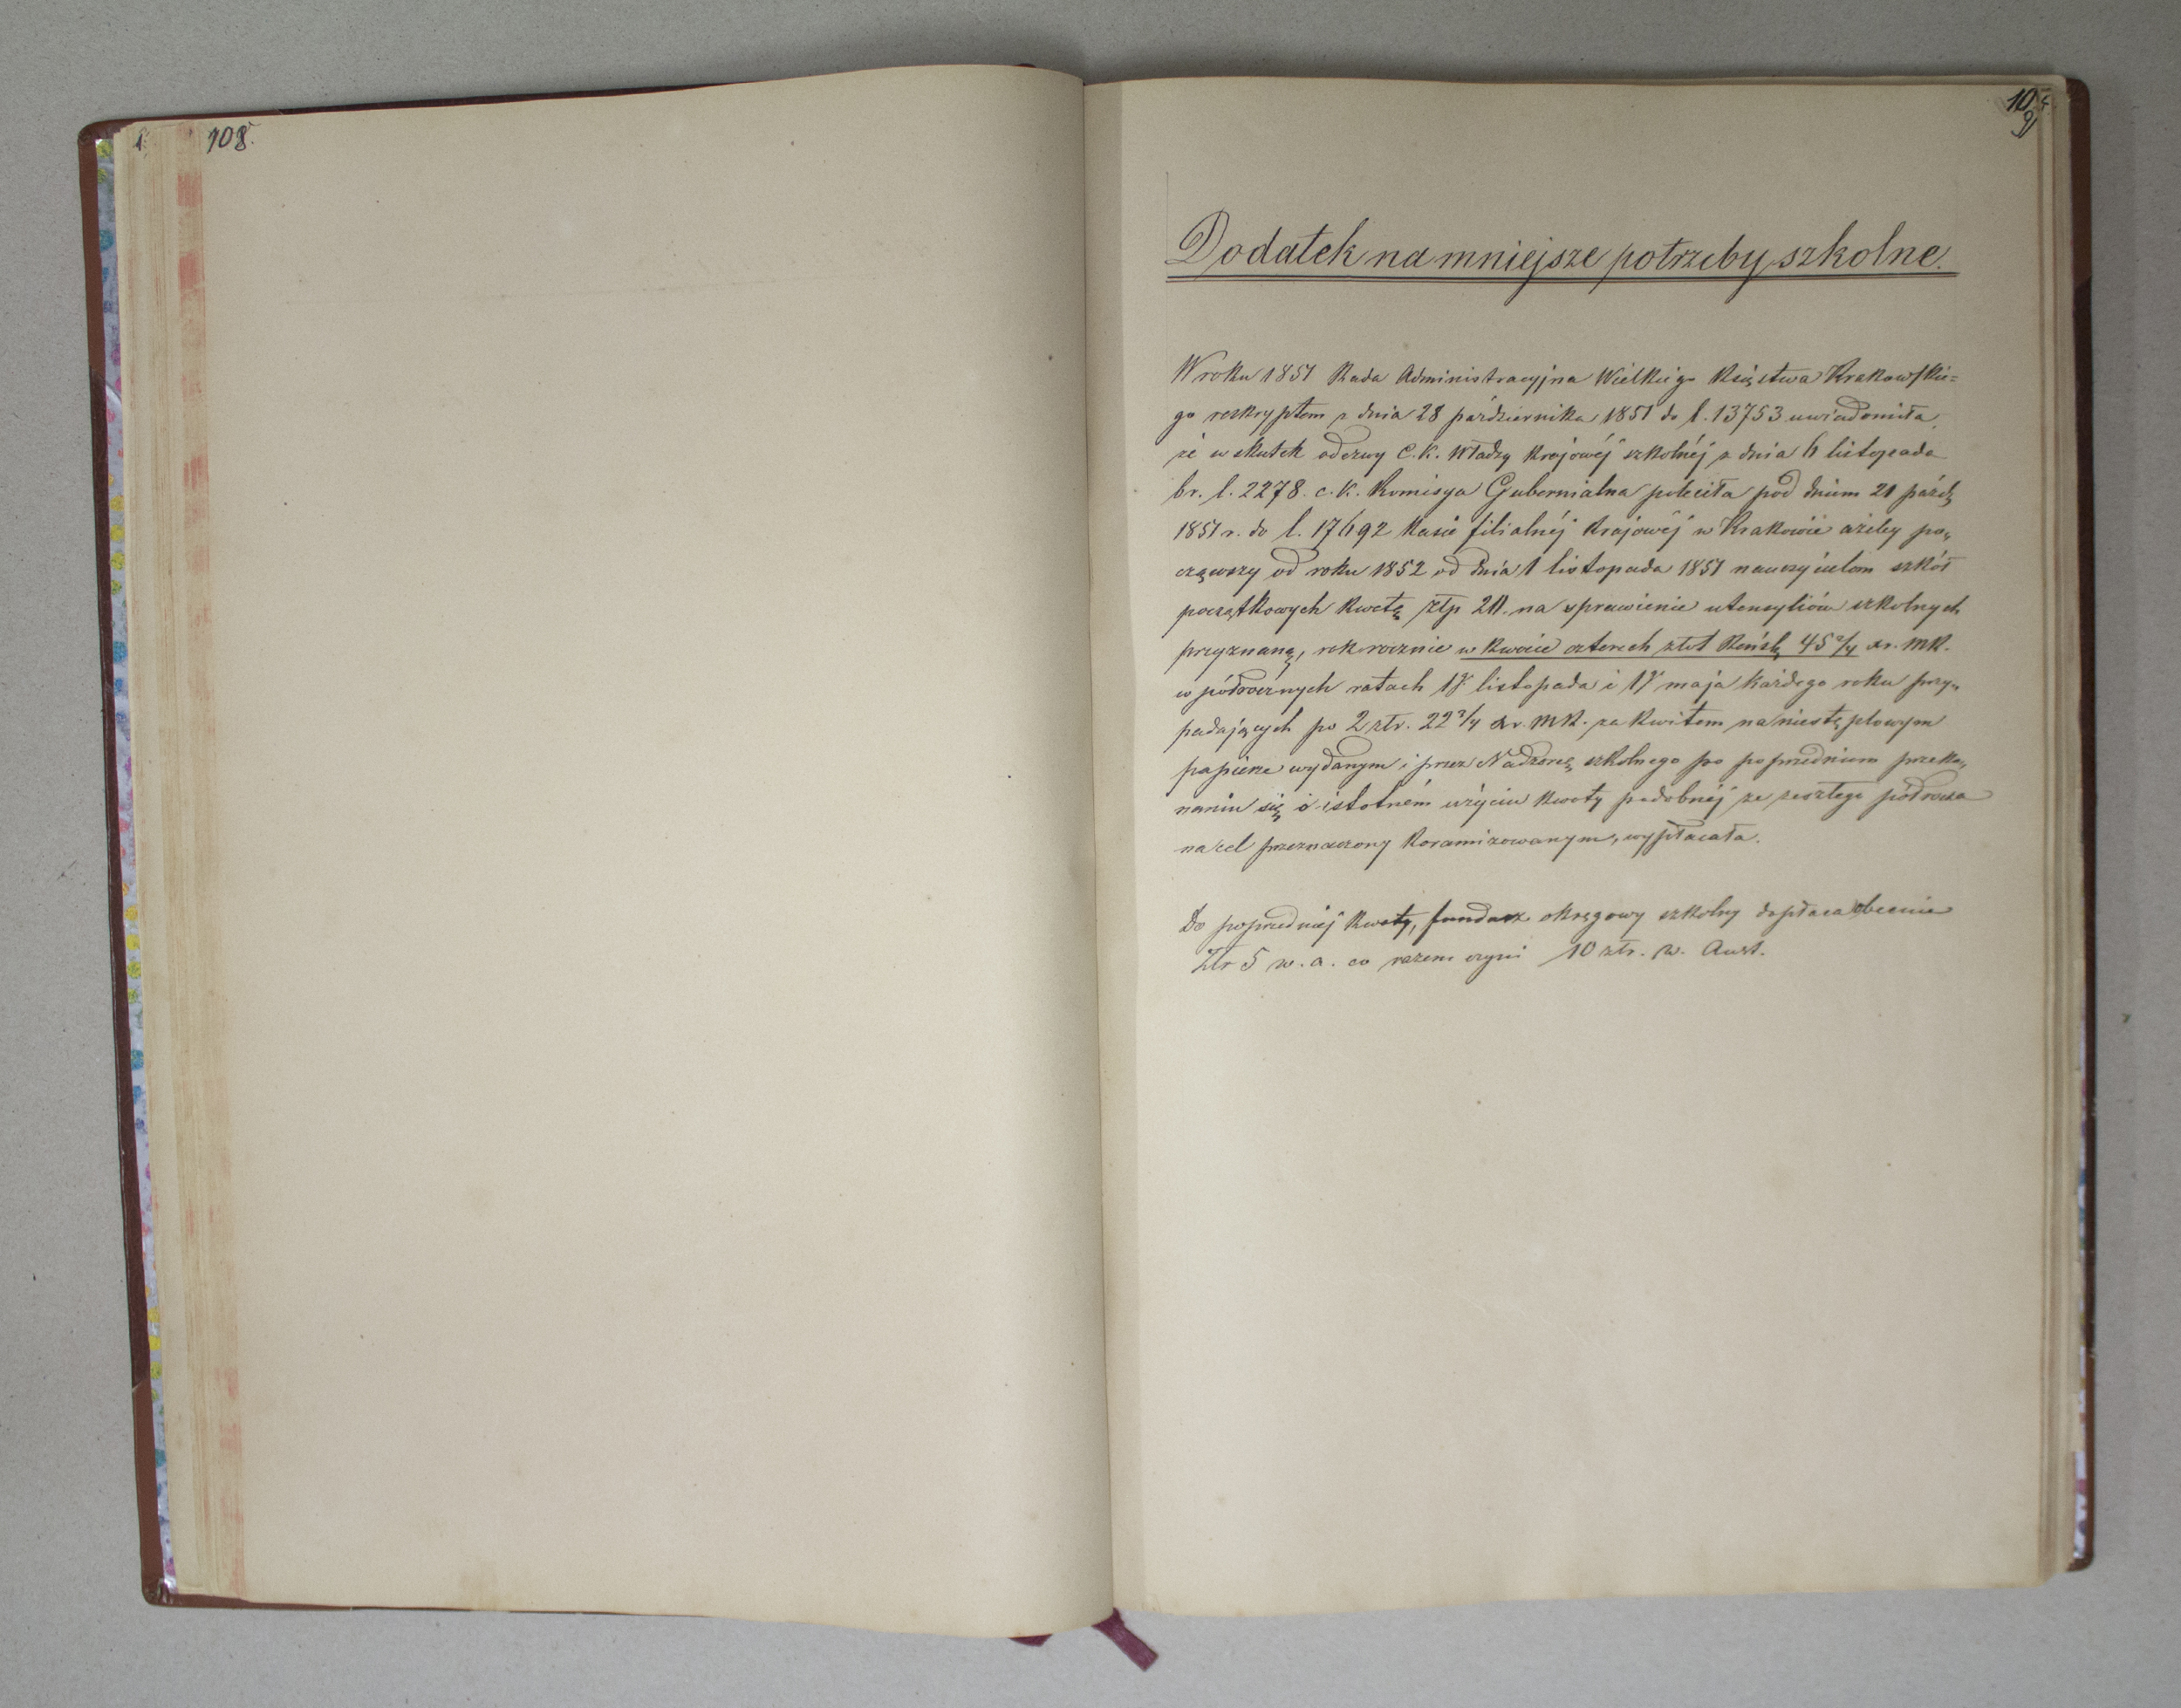 108.
109
Dodatek na mniejsze potrzeby szkolne.
W roku 1851 Rada Administracyjna Wielkiego Księstwa Krakowskie=
go reskryptem z dnia 28 października 1851 do l. 13753 uwiadomiła,
że w skutek odezwy C.K. Władzy Krajowéj szkolnéj z dnia 6 listopada
br. l. 2278. c.K. Komisya Gubernialna poleciła pod dniem 21 paźdz
1851 r. do l. 17692 Kasie filialnéj Krajowéj w Krakowie ażeby po„
cząwszy od roku 1852 od dnia 1 listopada 1851 nauczycielom szkół
początkowych Kwotę złp 20. na sprawienie utensyliów szkolnych
przyznaną, rok rocznie w kwocie czterech złot Reńsk 45 2/4 xr. MK.
w półrocznych ratach 1go listopada i 1go maja każdego roku przy„
padających po 2 złr. 22 3/4 xr. MK. za Kwitem na niestęplowym
papierze wydanym i przez Nadzorcę szkolnego po poprzedniem przeko„
naniu się o istotném użyciu kwoty podobnéj ze zeszłego półrocza
na cel przeznaczony Koramizowanym, wypłacała.
Do poprzedniéj Kwoty, fundusz okręgowy szkolny dopłaca obecnie
Złr 5 w. a. co razem czyni 10 złr. w. Aust.